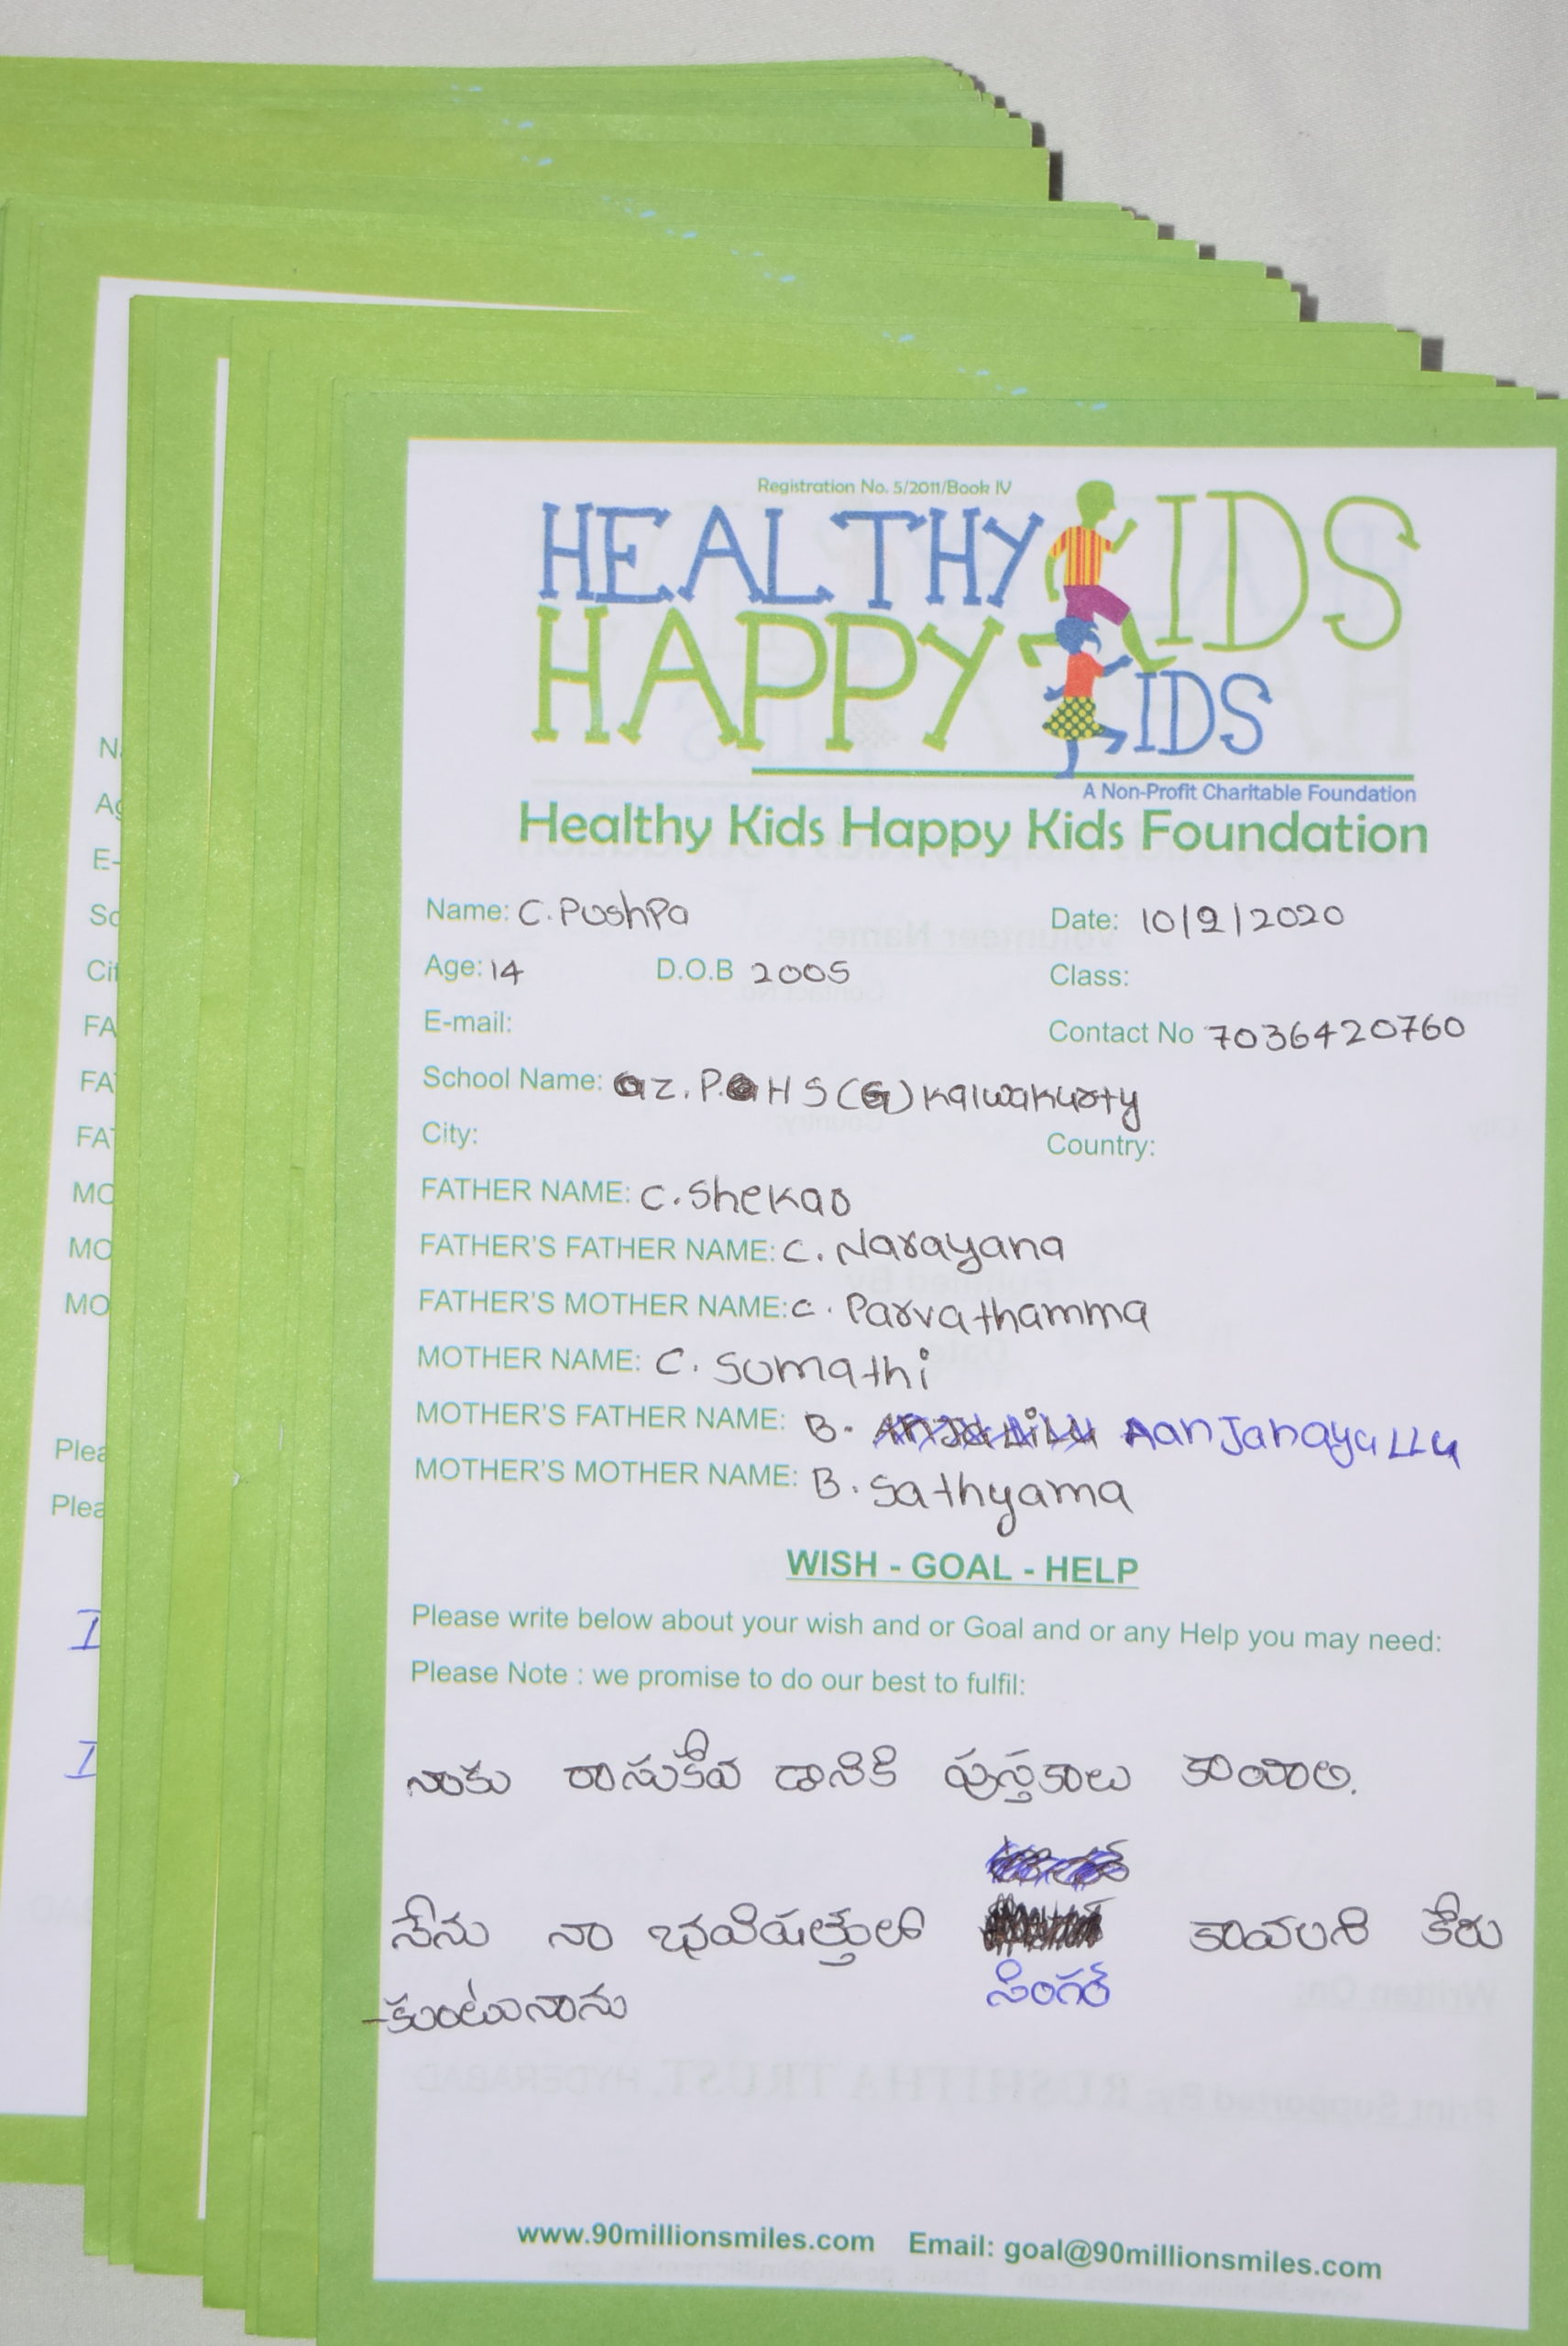 Registration No. 5/2011/Book IV
HEALTHY KIDS
HAPPY KIDS
A Non-Profit Charitable Foundation
Healthy Kids Happy Kids Foundation
Name: C. PushPa Date: 10/9/2020
Age: 14 D.O.B 2005 Class:
E-mail: Contact No 7036420760
School Name: Z.P.H S (G) Kalwakurty
City: Country:
FATHER NAME: C. Shekar
FATHER'S FATHER NAME: C. Narayana
FATHER'S MOTHER NAME: C. Parvathamma
MOTHER NAME: C. Sumathi
MOTHER'S FATHER NAME: B. AanJanayaLLu
MOTHER'S MOTHER NAME: B. Sathyama
WISH - GOAL - HELP
Please write below about your wish and or Goal and or any Help you may need:
Please Note : we promise to do our best to fulfil:
నాకు రాసుకోవ డానికి పుస్తకాలు కావాలి.
నేను నా భవిషత్తులో సింగర్ కావలని కోరు
-కుంటునాను
www.90millionsmiles.com Email: goal@90millionsmiles.com
N
Ag
E-
Sc
Cit
FA
FA
FA
MO
MO
MO
Plea
Plea
I
I